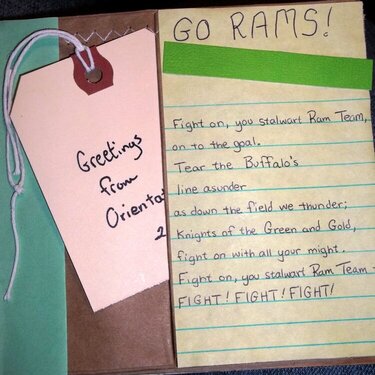 Greetings
from
GO RAMS!
Fight on, you stalwart Ram Team,
on to the goal.
Tear the Buffalo's
line asunder
as down the field we thunder;
Knights of the Green and Gold,
fight on with all your might.
Fight on, you stalwart Ram Team
FIGHT! FIGHT! FIGHT!